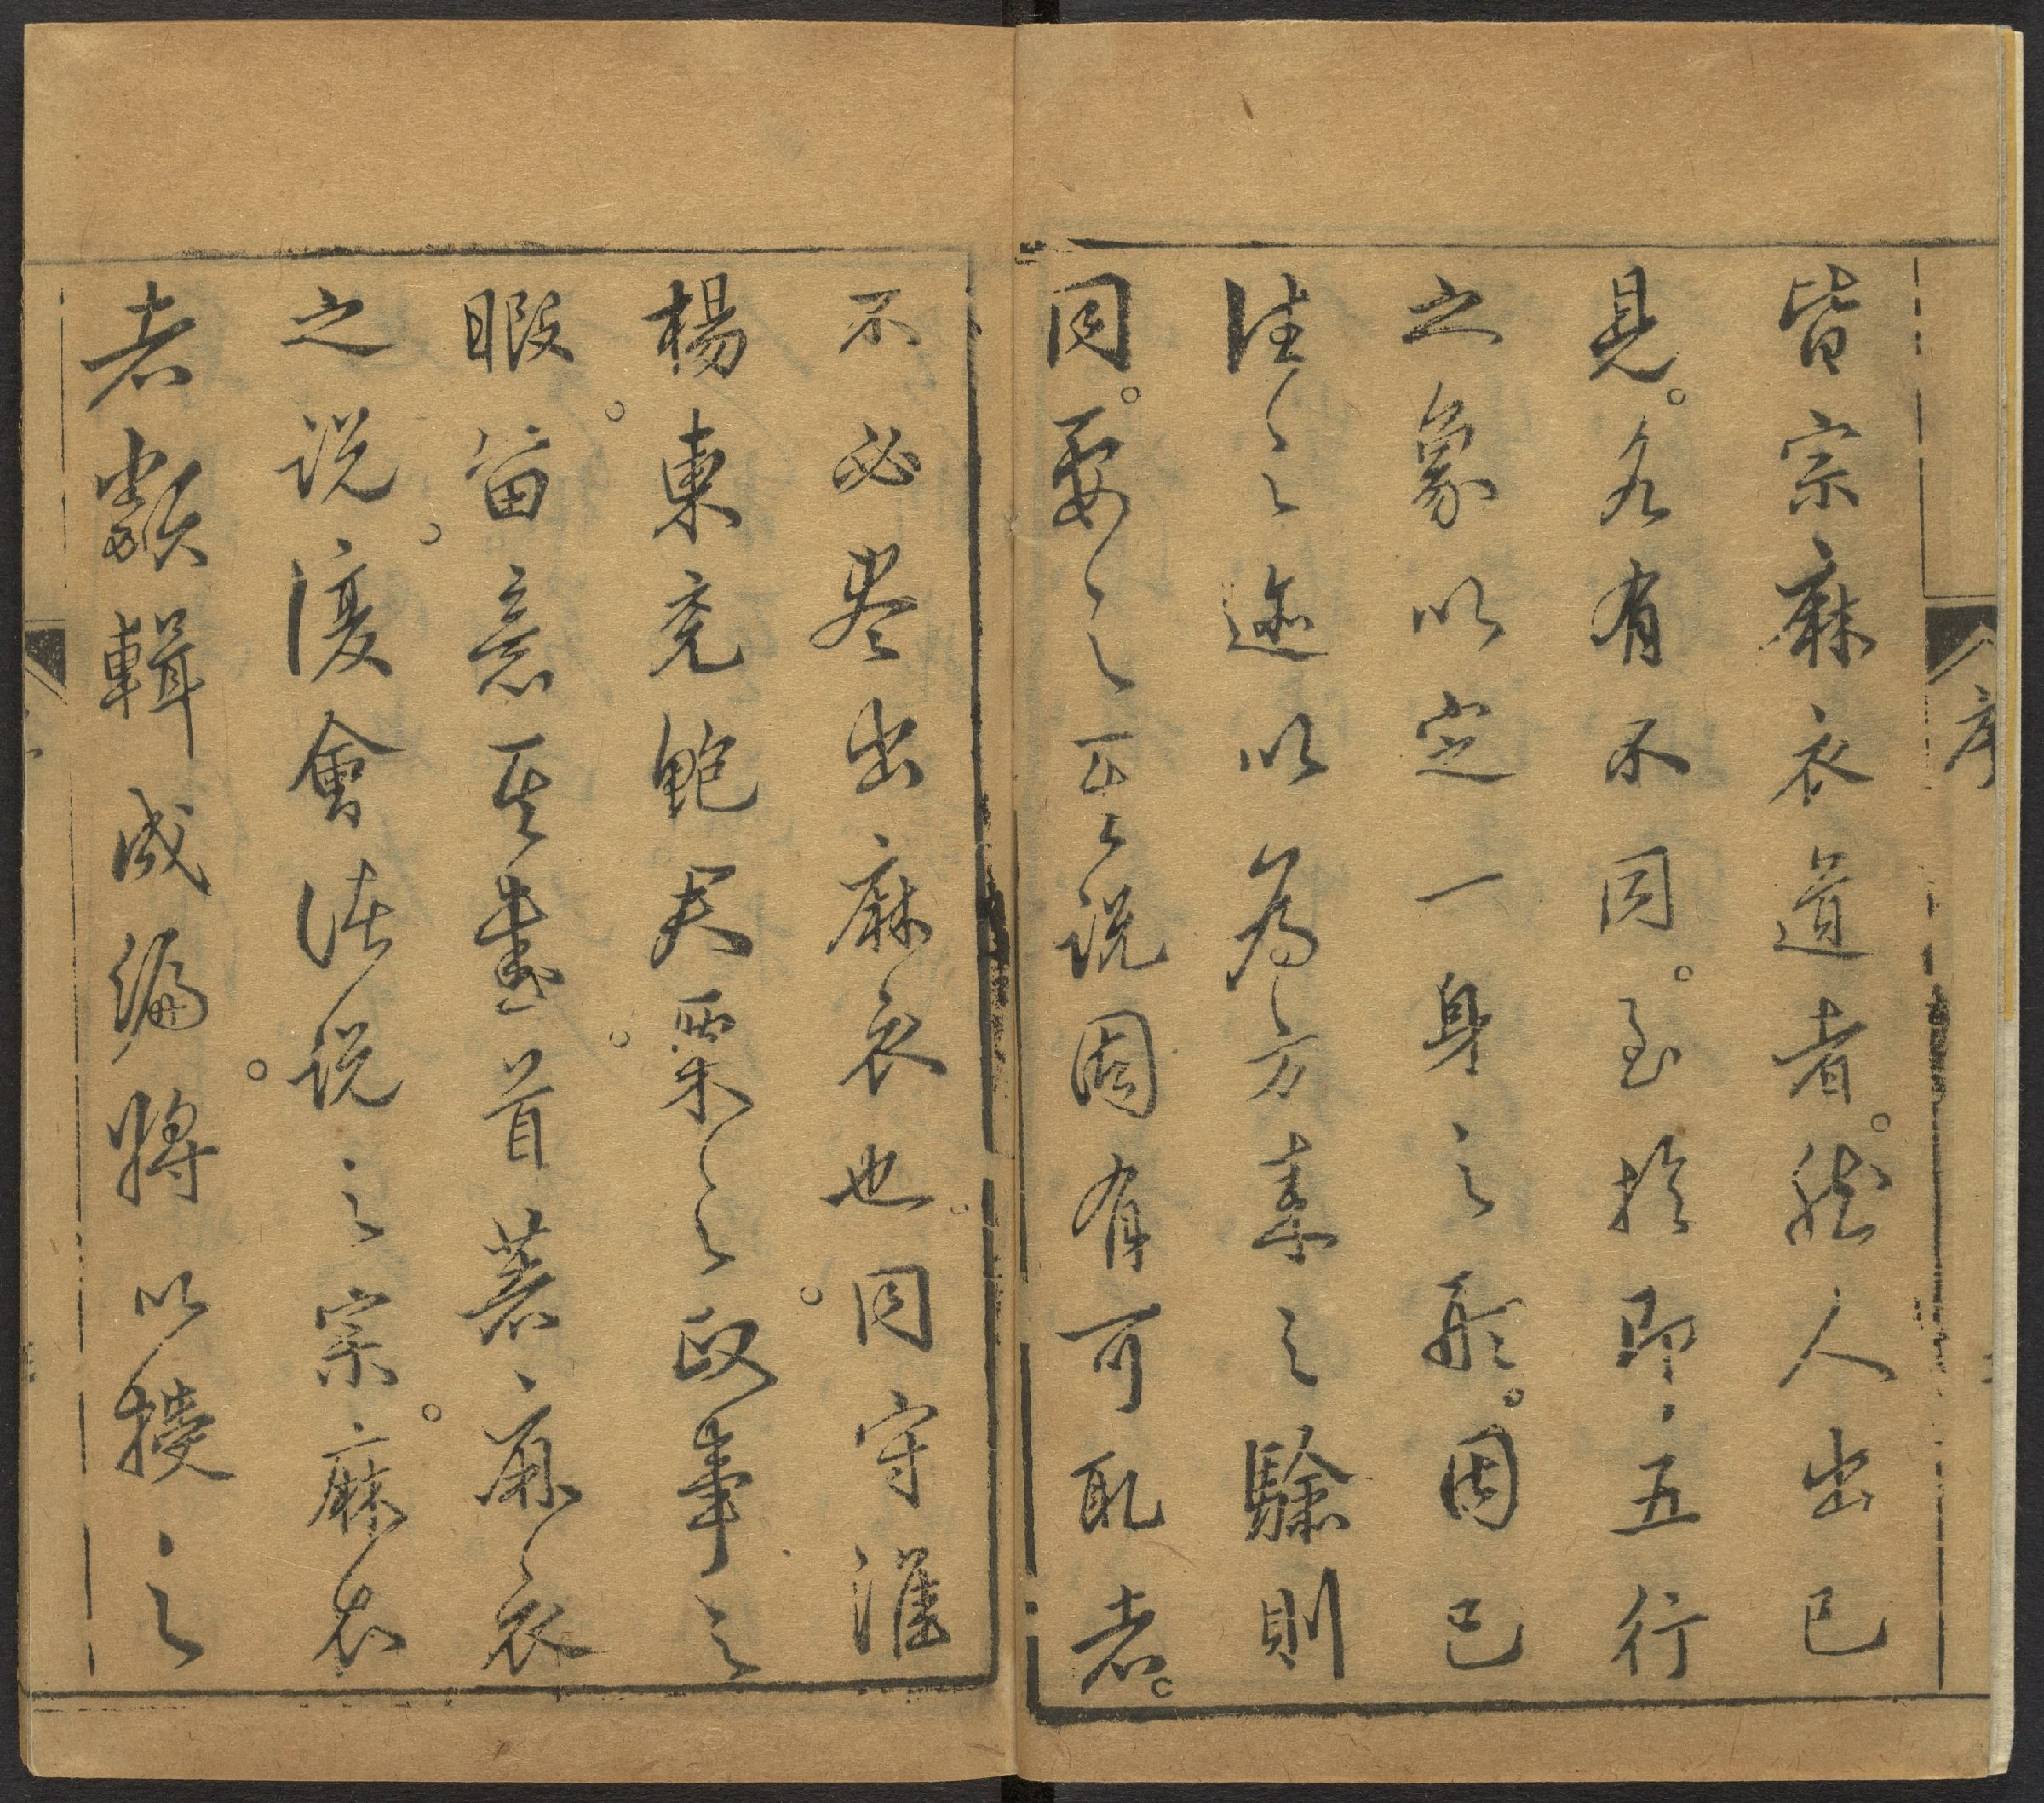 序
皆宗麻衣道者。然人出己
見。各有不同。至於即五行
之象以定一身之形。因已
往之迹以為方来之驗則
同。要之百說固有可取者。
不必盡出麻衣也。同守淮
楊東兗鮑
栗之政事之
暇。留意
其書。首著麻衣
之說。復會諸說之宗。麻衣
者類輯成編。將以授之